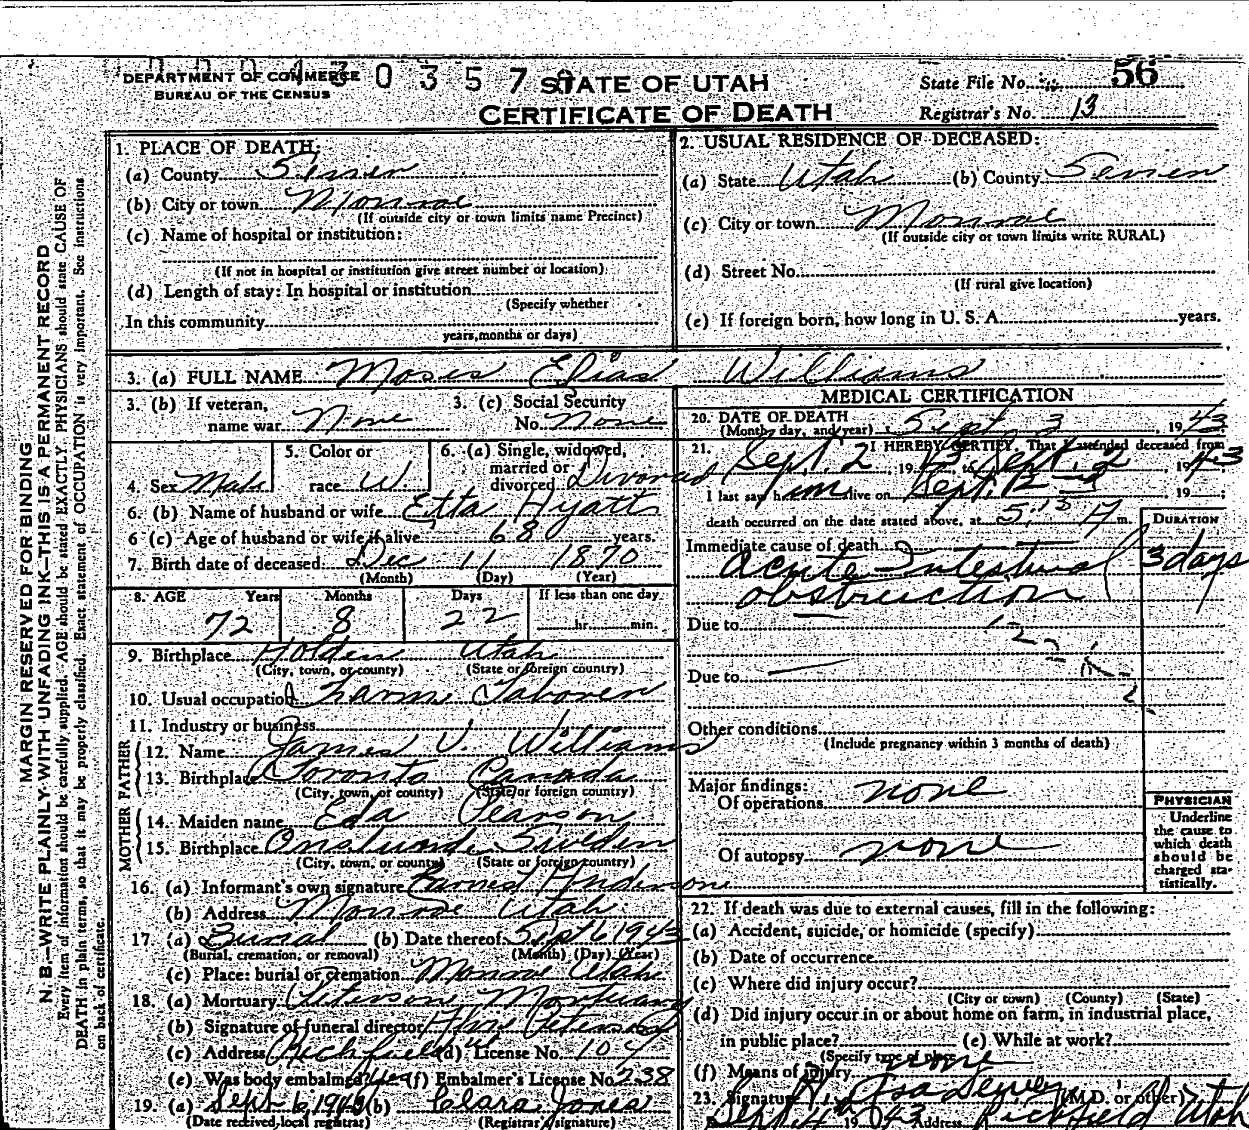 DEPARTMENT OF COMMERCE
BUREAU OF THE CENSUS
STATE OF UTAH
CERTIFICATE OF DEATH
State File No. 56
Registrar's No. 13
MARGIN RESERVED FOR BINDING
N. B.—WRITE PLAINLY WITH UNFADING INK—THIS IS A PERMANENT RECORD
Every item of information should be carefully supplied. AGE should be stated EXACTLY. PHYSICIANS should state CAUSE OF
DEATH in plain terms, so that it may be properly classified. Exact statement of OCCUPATION is very important. See instructions
on back of certificate.
1. PLACE OF DEATH:
(a) County Sevier
(b) City or town Monroe
(If outside city or town limits name Precinct)
(c) Name of hospital or institution:
(If not in hospital or institution give street number or location)
(d) Length of stay: In hospital or institution
(Specify whether
In this community
years, months or days)
2. USUAL RESIDENCE OF DECEASED:
(a) State Utah (b) County Sevier
(c) City or town Monroe
(If outside city or town limits write RURAL)
(d) Street No.
(If rural give location)
(e) If foreign born, how long in U. S. A. years.
3. (a) FULL NAME Moses Elias Williams
3. (b) If veteran, name war None
3. (c) Social Security No. None
4. Sex Male
5. Color or race W
6. (a) Single, widowed, married or divorced Divorced
6. (b) Name of husband or wife Etta Hyatt
6 (c) Age of husband or wife if alive 68 years.
7. Birth date of deceased Dec 11 1870
(Month) (Day) (Year)
8. AGE Years Months Days If less than one day
72 8 22 hr. min.
9. Birthplace Holden Utah
(City, town, or county) (State or foreign country)
10. Usual occupation Farm Laborer
11. Industry or business
FATHER
12. Name James V. Williams
13. Birthplace Toronto Canada
(City, town, or county) (State or foreign country)
MOTHER
14. Maiden name Eda Pearson
15. Birthplace Sweden
(City, town, or county) (State or foreign country)
16. (a) Informant's own signature
(b) Address Monroe Utah
17. (a) Burial (b) Date thereof Sept 6 1943
(Burial, cremation, or removal) (Month) (Day) (Year)
(c) Place: burial or cremation Monroe Utah
18. (a) Mortuary Peterson Mortuary
(b) Signature of funeral director Peterson
(c) Address Richfield Ut (d) License No. 107
(e) Was body embalmed? Yes (f) Embalmer's License No. 238
19. (a) Sept 6, 1943 (b) Clara Jones
(Date received local registrar) (Registrar's signature)
MEDICAL CERTIFICATION
20. DATE OF DEATH
(Month, day, and year) Sept 3, 1943
21. I HEREBY CERTIFY, That I attended deceased from
Sept. 2 1943 to Sept. 2 1943
I last saw him alive on Sept. 19
death occurred on the date stated above, at 5:15 A m.
DURATION
Immediate cause of death
Acute Intestinal 3 days
obstruction
Due to
Due to
Other conditions
(Include pregnancy within 3 months of death)
Major findings:
Of operations none
Of autopsy none
PHYSICIAN
Underline
the cause to
which death
should be
charged sta-
tistically.
22. If death was due to external causes, fill in the following:
(a) Accident, suicide, or homicide (specify)
(b) Date of occurrence
(c) Where did injury occur?
(City or town) (County) (State)
(d) Did injury occur in or about home on farm, in industrial place,
in public place? (e) While at work?
(Specify type of place)
(f) Means of injury none
23. Signature (M.D. or other)
Sept 4th 1943 Address Richfield Utah